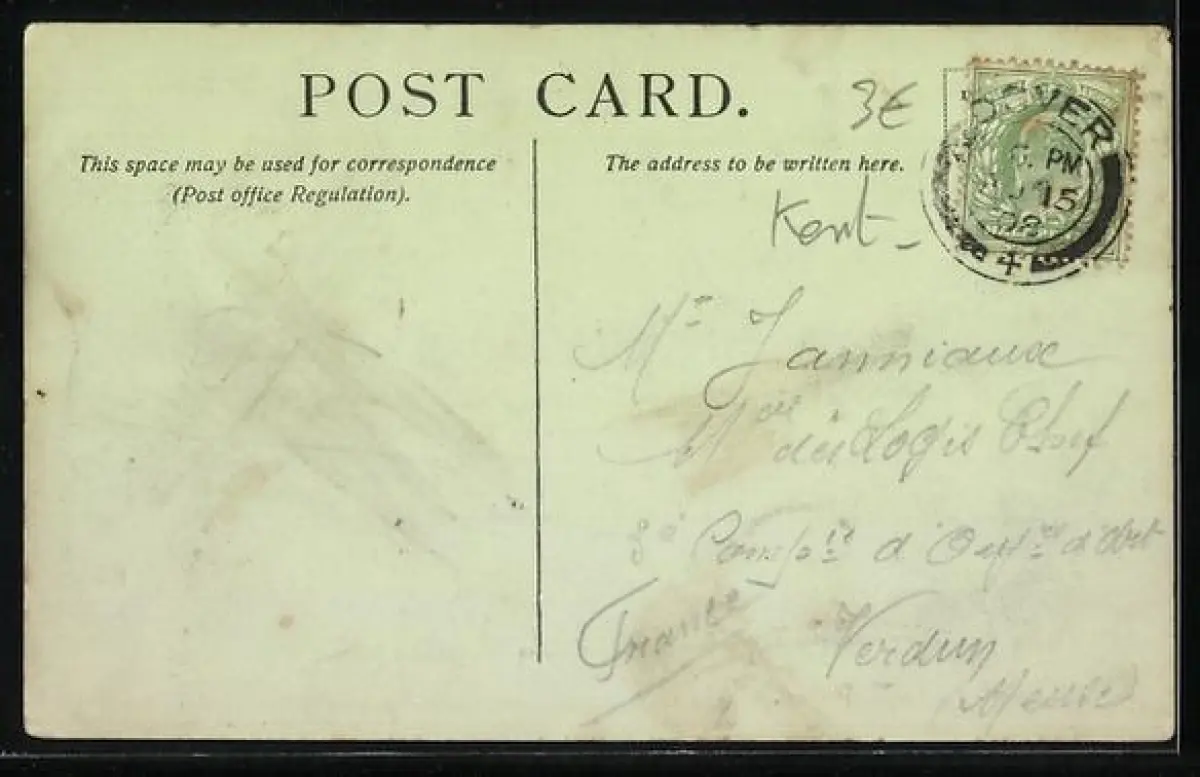 POST CARD.
3€
This space may be used for correspondence
(Post office Regulation).
The address to be written here.
Kent
DOVER
PM
15
08
Mr Janniaux
Mal des Logis Chef
3e Compie d'Ouvr d'Art
France
Verdun
Meuse